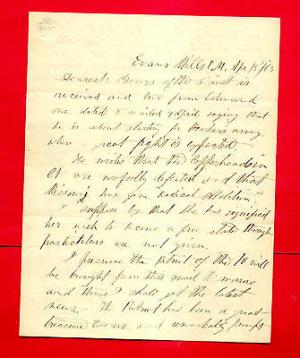 Evans Mills P.M. Apr 15/63
Dearest yours of the first is
received and two from Edward
one dated & mailed 7 April saying that
he is about starting for Hookers army
where great fight is expected
He writes that the Copperheads in
Ct are woefully defeated and that
Missouri has gone radical abolition
suppose by that she has signified
her wish to become a free state though
particulars are not given.
I presume the patriot of the 10 will
be brought from this mail to morrow
and then I shall get the latest
news. The Patriot has been a great
treasure and remarkably